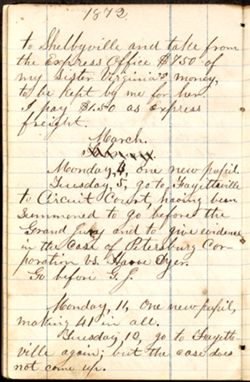 1872
to Shelbyville and take from
the Express Office $750 of
my Sister Virginia's money,
to be kept by me for her.
I pay $1.50 as express
freight.
March.
Monday, 4, one new pupil.
Tuesday, 5, go to Fayetteville
to Circuit Court, having been
summoned to go before the
Grand Jury and to give evidence
in the Case of Petersburg Cor-
poration vs.
Go before G. J.
Monday, 11, One new pupil,
making 41 in all.
Tuesday, go to Fayette-
ville again; but the case does
not come up.